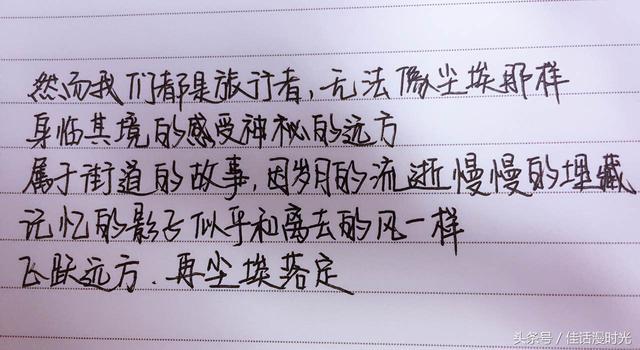 然而我们都是旅行者,无法像尘埃那样
身临其境的感受神秘的远方
属于街道的故事,因岁月的流逝慢慢的埋藏
记忆的影子似乎和离去的风一样
飞跃远方.再尘埃落定
头条号/佳话漫时光